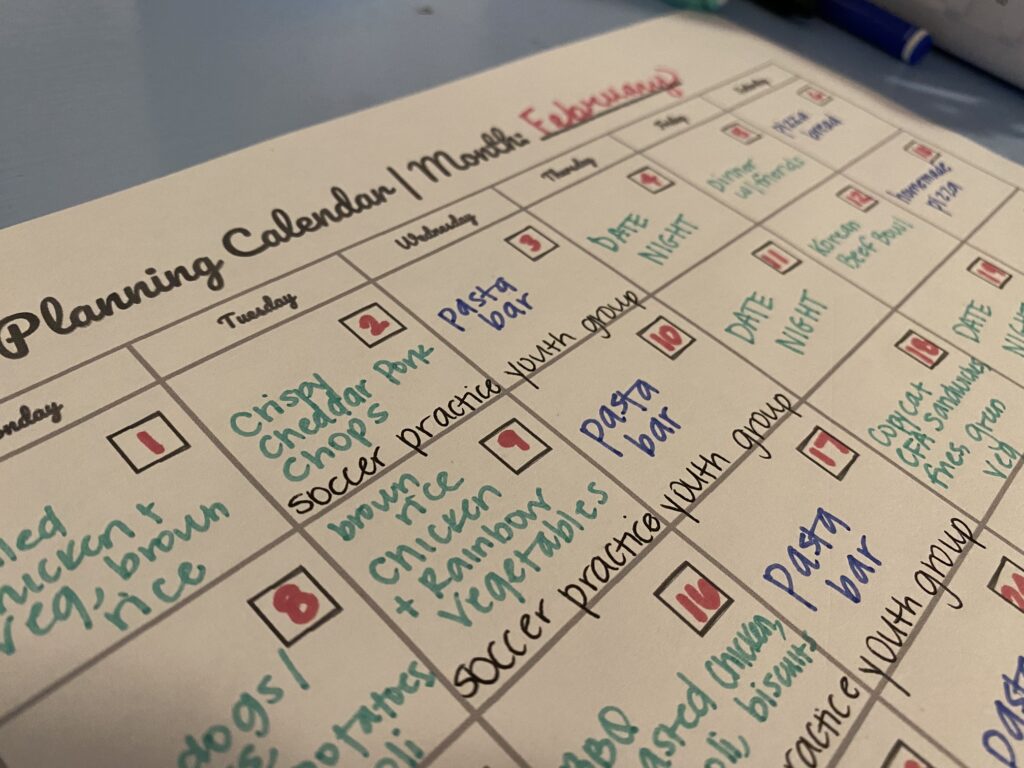 Planning Calendar | Month: February
Monday
Tuesday
Wednesday
Thursday
Friday
Saturday
1
chicken +
veg, brown
rice
2
Crispy
Cheddar Pork
Chops
soccer practice
3
Pasta
bar
youth group
4
DATE
NIGHT
5
Dinner
w/friends
6
pizza
bread
8
dogs/
potatoes
9
brown
rice
chicken
+ Rainbow
Vegetables
soccer practice
10
Pasta
bar
youth group
11
DATE
NIGHT
12
Korean
Beef Bowl
13
homemade
pizza
16
BBQ
chicken,
biscuits
practice
17
Pasta
bar
youth group
18
Copycat
CFA Sandwiches
fries, green
veg
19
DATE
NIGHT
Pasta